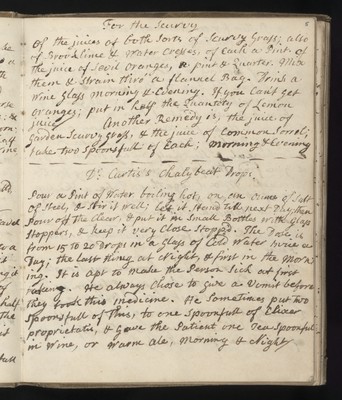 For the Scurvy
Of the juices of both Sorts of Scurvy Grass; also
of Brooklime & Water Cresses, of Each a Pint. of
the juice of Sevil Oranges, a pint & Quarter. Mix
them & Strain thro' a flannel Bag. Drink a
Wine Glass morning & Evening. If you Can't get
Oranges; put in half the Quantity of Lemon
juice. Another Remedy is, the juice of
Garden Scurvy Grass, & the juice of Common Sorrel;
take two Spoonsfull of Each; morning & Evening
Dr. Curtis's Chalybeat Drops.
Pour a Pint of Water boiling hot, on an ounce of Salt
of Steel, & Stir it well; let it Stand till next Day, then
Pour off the Clear, & put it in Small Bottles with Glass
Stoppers, & keep it very Close Stopped. The Dose is
from 15 to 20 Drops in a Glass of Cold Water twice a
Day; the last thing at Night, & first in the Morn
ing. It is apt to make the Person Sick at first
taking. He always Chose to give a Vomit before
they took this medicine. He Sometimes put two
Spoonsfull of This, to one Spoonfull of Elixer
proprietatis, & Gave the Patient one Tea Spoonful
in Wine, or Warm Ale, Morning & Night